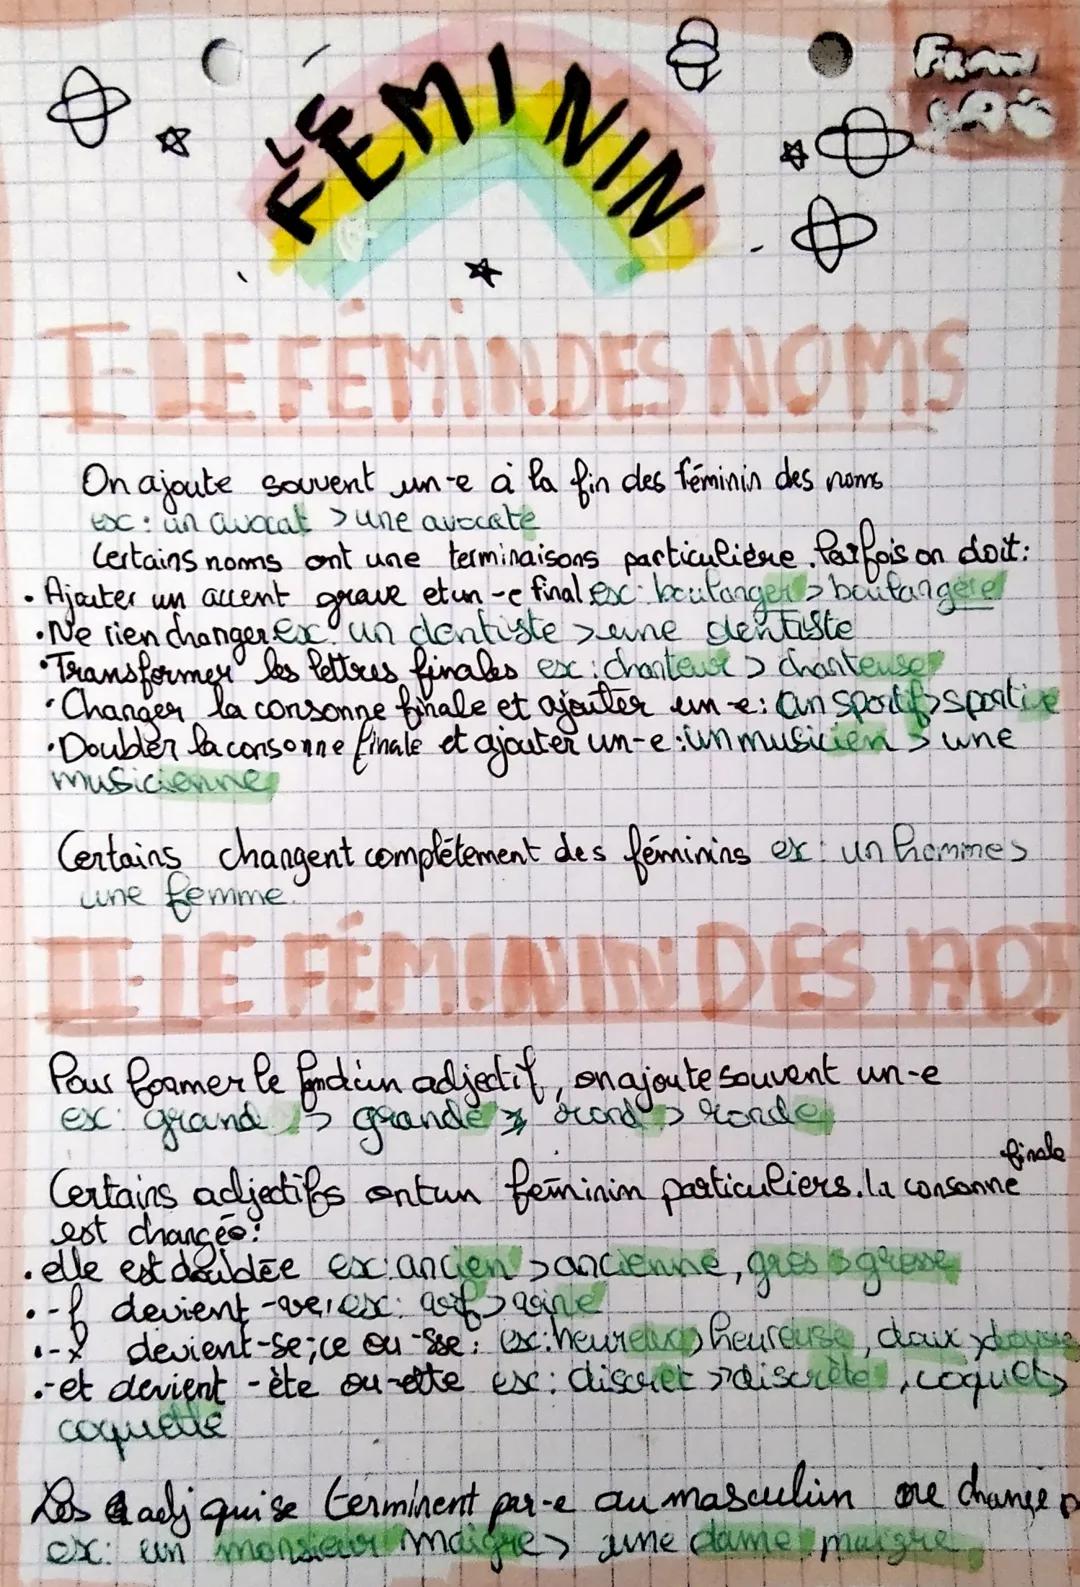 LE
FÉMININ
FRAN
I-LE FÉMIN.DES NOMS
On ajoute souvent un-e à la fin des féminin des noms
ex: un avocat > une avocate
Certains noms ont une terminaisons particulière. Parfois on doit:
• Ajouter un accent grave et un -e final ex: boulanger > boulangère
• Ne rien changer. ex: un dentiste > une dentiste
• Transformer les lettres finales ex: chanteur > chanteuse
• Changer la consonne finale et ajouter un-e: un sportif > sportive
• Doubler la consonne finale et ajouter un-e: un musicien > une
musicienne
Certains changent complétement des féminins ex: un homme >
une femme.
II-LE FÉMININ DES ADJ
Pour former le d'un adjectif, on ajoute souvent un-e
ex: grand > grande rond > ronde
finale
Certains adjectifs ont un féminin particuliers. la consonne
est changée:
• elle est doublée ex: ancien > ancienne, gros > grosse
• -f devient -ve, ex:
• -x devient -se; ce ou -sse: ex: heureux > heureuse, doux > douce
• -et devient -ète ou -ette ex: discret > discrète, coquet >
coquette
Les adj qui se terminent par -e au masculin ne change p
ex: un monsieur maigre > une dame maigre